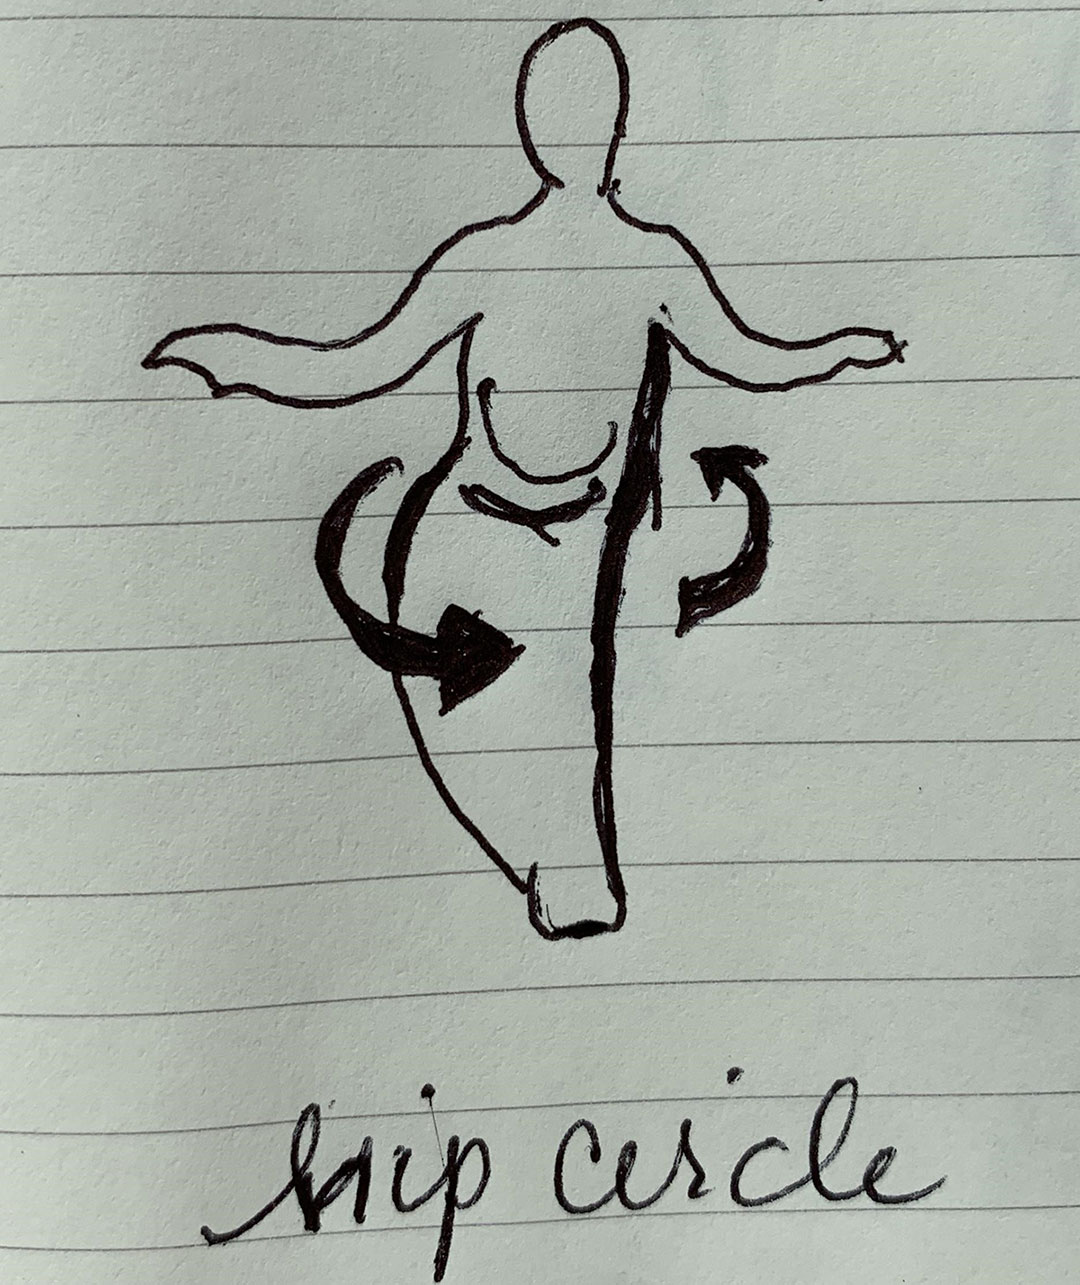 hip circle